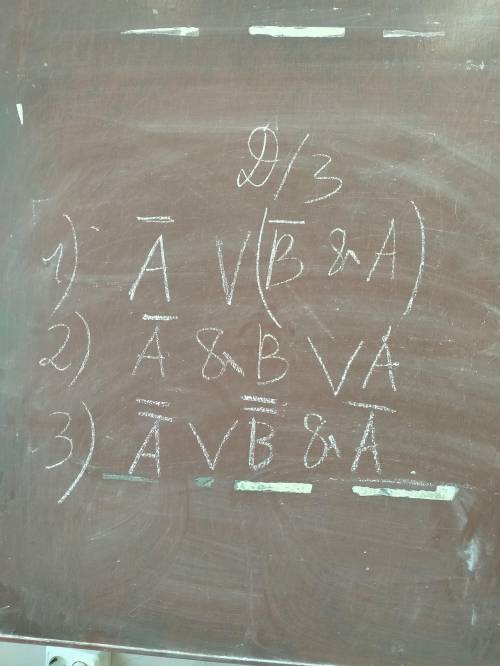 Д/з
1) A̅ V (B̅ & A)
2) A̅ & B V A
3) A̿ V B̿ & A̅